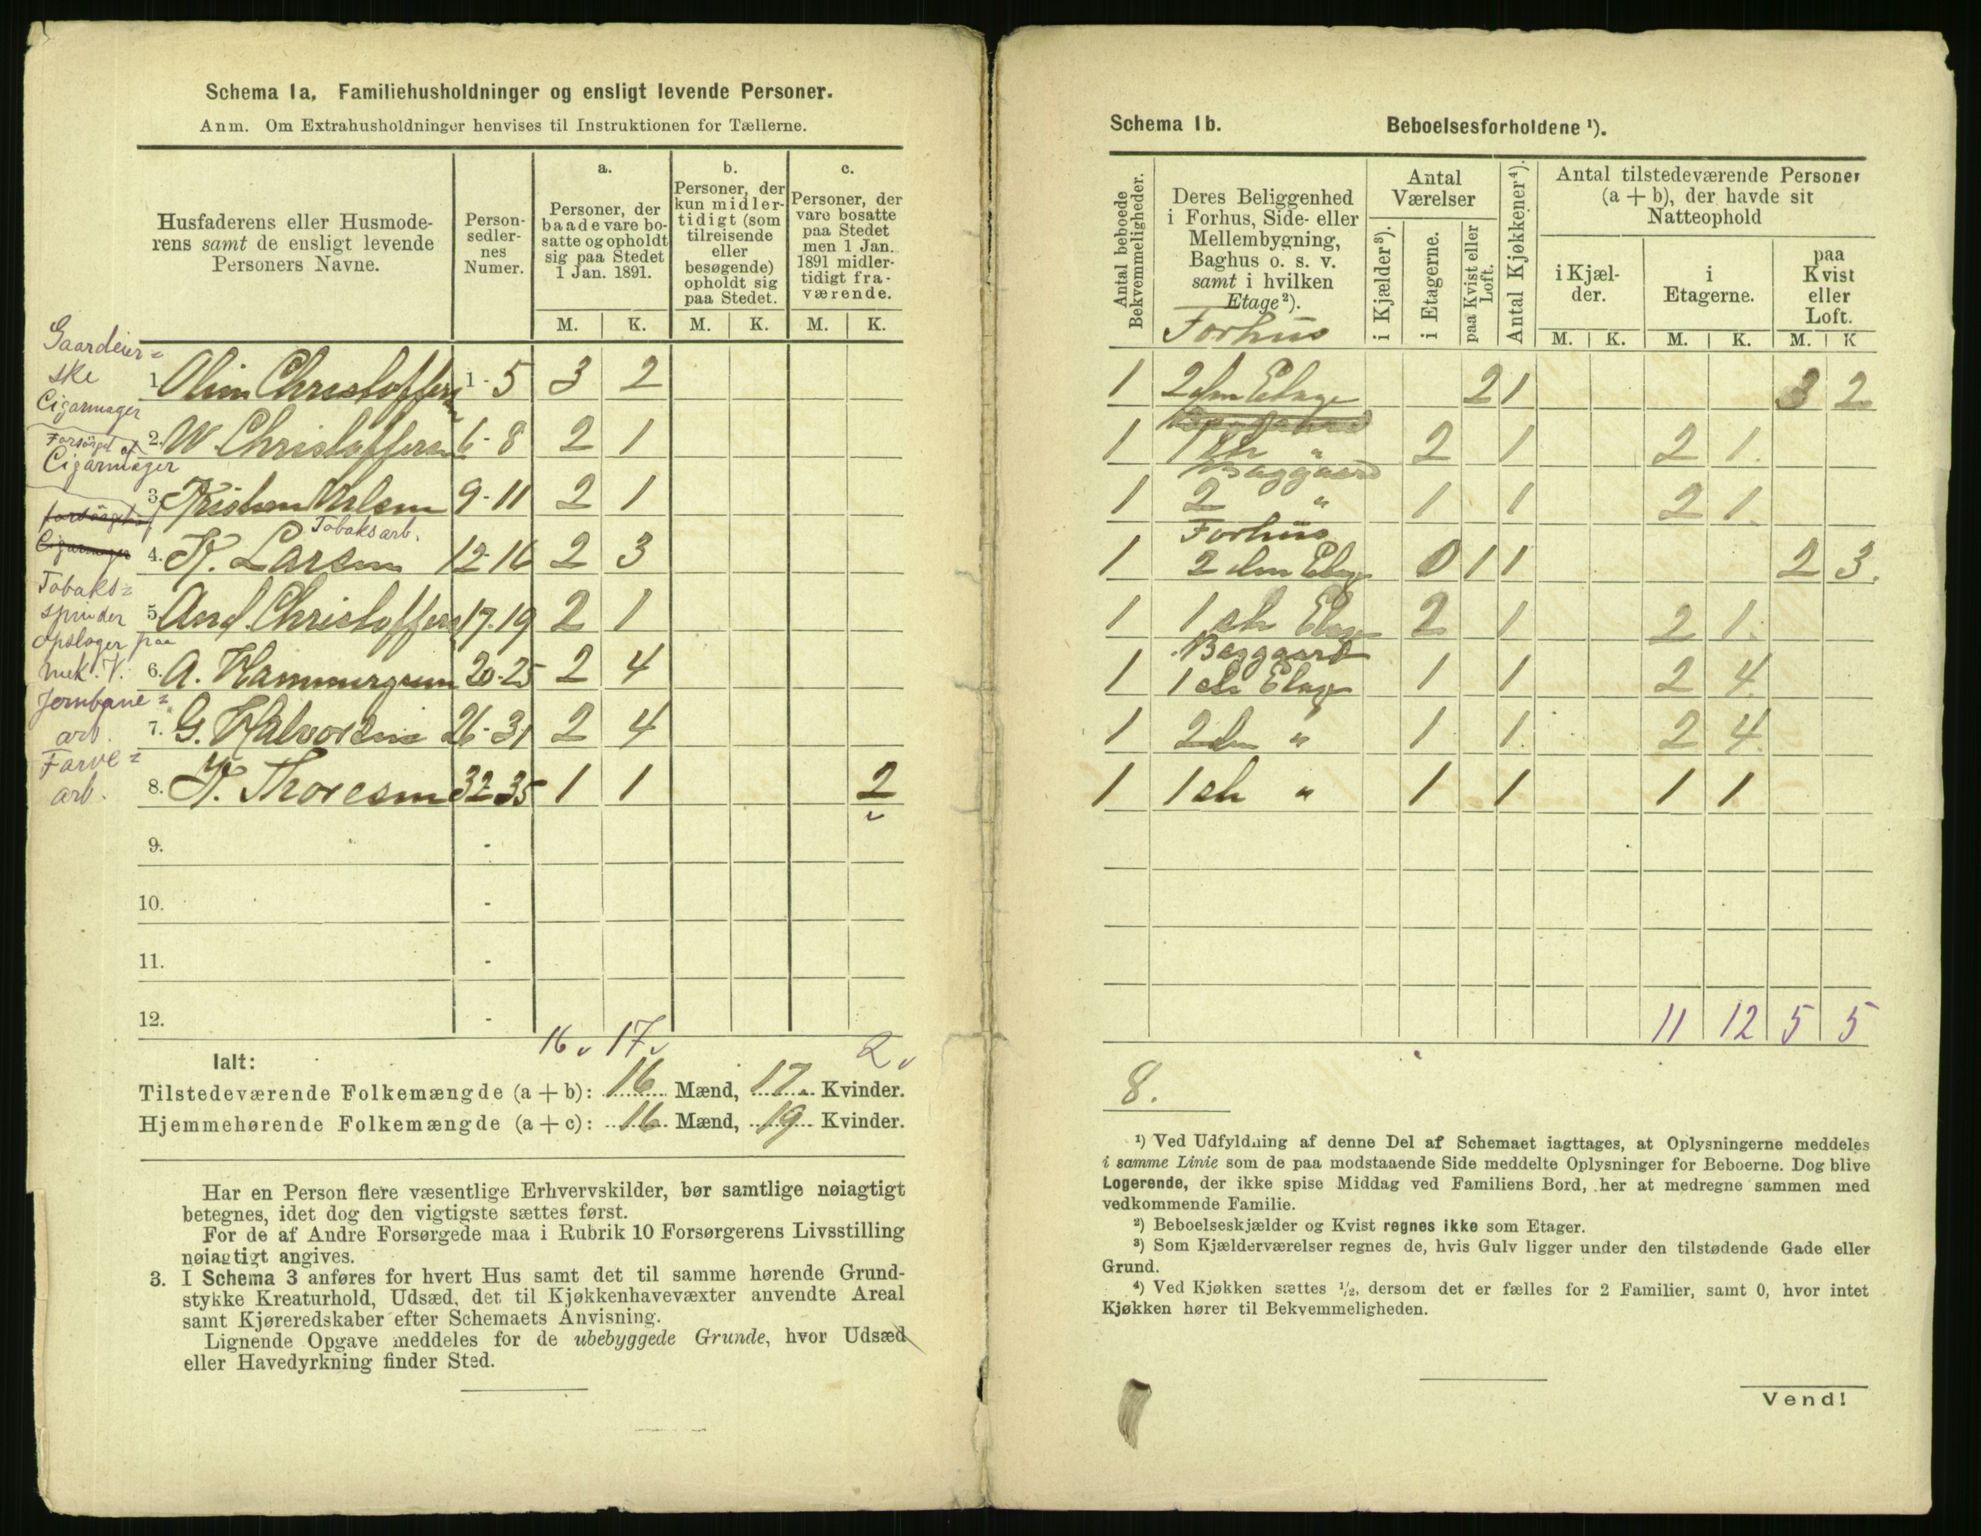 Schema 1a. Familiehusholdninger og ensligt levende Personer.
Anm. Om Extrahusholdninger henvises til Instruktionen for Tællerne.
Husfaderens eller Husmode-
rens samt de ensligt levende
Personers Navne.
Person-
sedler-
nes
Numer.
a.
Personer, der
baade vare bo-
satte og opholdt
sig paa Stedet
1 Jan. 1891.
b.
Personer, der
kun midler-
tidigt (som
tilreisende
eller
besøgende)
opholdt sig
paa Stedet.
c.
Personer, der
vare bosatte
paa Stedet
men 1 Jan.
1891 midler-
tidigt fra-
værende.
M. K. M. K. M. K.
Gaardeier=
ske
1. Olin Christoffersen 1-5 3 2
Cigarmager
2. W Christoffersen 6-8 2 1
Forsørget af
Cigarmager
3. 9-11 2 1
forsørget af
Cigarmager
Tobaksarb.
4. K. Larsen 12-16 2 3
Tobaks=
spinder
5. And. Christoffersen 17-19 2 1
Opsloger paa
mek. V.
6. A. 20-25 2 4
Jernbane=
arb.
7. G. Halvorsen 26-31 2 4
Farve=
arb.
8. K. Thoresen 32-35 1 1 2
9. -
10. -
11. -
12. -
16 17 2
Ialt:
Tilstedeværende Folkemængde (a + b): 16 Mænd, 17 Kvinder.
Hjemmehørende Folkemængde (a + c): 16 Mænd, 19 Kvinder.
Har en Person flere væsentlige Erhvervskilder, bør samtlige nøiagtigt
betegnes, idet dog den vigtigste sættes først.
For de af Andre Forsørgede maa i Rubrik 10 Forsørgerens Livsstilling
nøiagtigt angives.
3. I Schema 3 anføres for hvert Hus samt det til samme hørende Grund-
stykke Kreaturhold, Udsæd, det til Kjøkkenhavevæxter anvendte Areal
samt Kjøreredskaber efter Schemaets Anvisning.
Lignende Opgave meddeles for de ubebyggede Grunde, hvor Udsæd
eller Havedyrkning finder Sted.
Schema 1b. Beboelsesforholdene ¹).
Antal beboede
Bekvemmeligheder.
Deres Beliggenhed
i Forhus, Side- eller
Mellembygning,
Baghus o. s. v.
samt i hvilken
Etage²).
Antal
Værelser
i Kjælder³).
i Etagerne.
paa Kvist eller
Loft.
Antal Kjøkkener⁴).
Antal tilstedeværende Personer
(a + b), der havde sit
Natteophold
i Kjæl-
der.
i
Etagerne.
paa
Kvist
eller
Loft.
M. K. M. K. M. K
Forhus
1 2den Etage 2 1 3 2
1 1ste " 2 1 2 1
Baggaard
1 2 " 1 1 2 1
Forhus
1 2den Etage 0 1 1 2 3
1 1ste Etage 2 1 2 1
Baggaard
1 1ste Etage 1 1 2 4
1 2den " 1 1 2 4
1 1ste " 1 1 1 1
11 12 5 5
8.
¹) Ved Udfyldning af denne Del af Schemaet iagttages, at Oplysningerne meddeles
i samme Linie som de paa modstaaende Side meddelte Oplysninger for Beboerne. Dog blive
Logerende, der ikke spise Middag ved Familiens Bord, her at medregne sammen med
vedkommende Familie.
²) Beboelseskjælder og Kvist regnes ikke som Etager.
³) Som Kjælderværelser regnes de, hvis Gulv ligger under den tilstødende Gade eller
Grund.
⁴) Ved Kjøkken sættes ½, dersom det er fælles for 2 Familier, samt 0, hvor intet
Kjøkken hører til Bekvemmeligheden.
Vend!